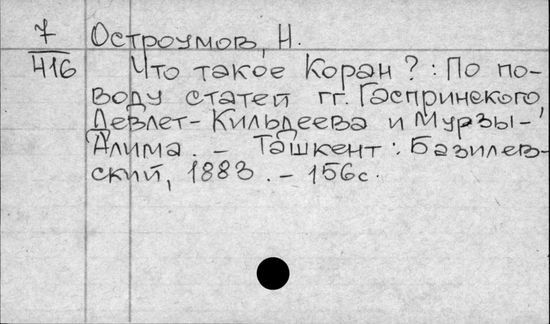 7 Остроумов, Н.
416 Что такое Коран? : По по-
воду статей гг. Гаспринского,
Девлет-Кильдеева и Мурзы-
Алима. - Ташкент : Базилев-
ский, 1883. - 156с.